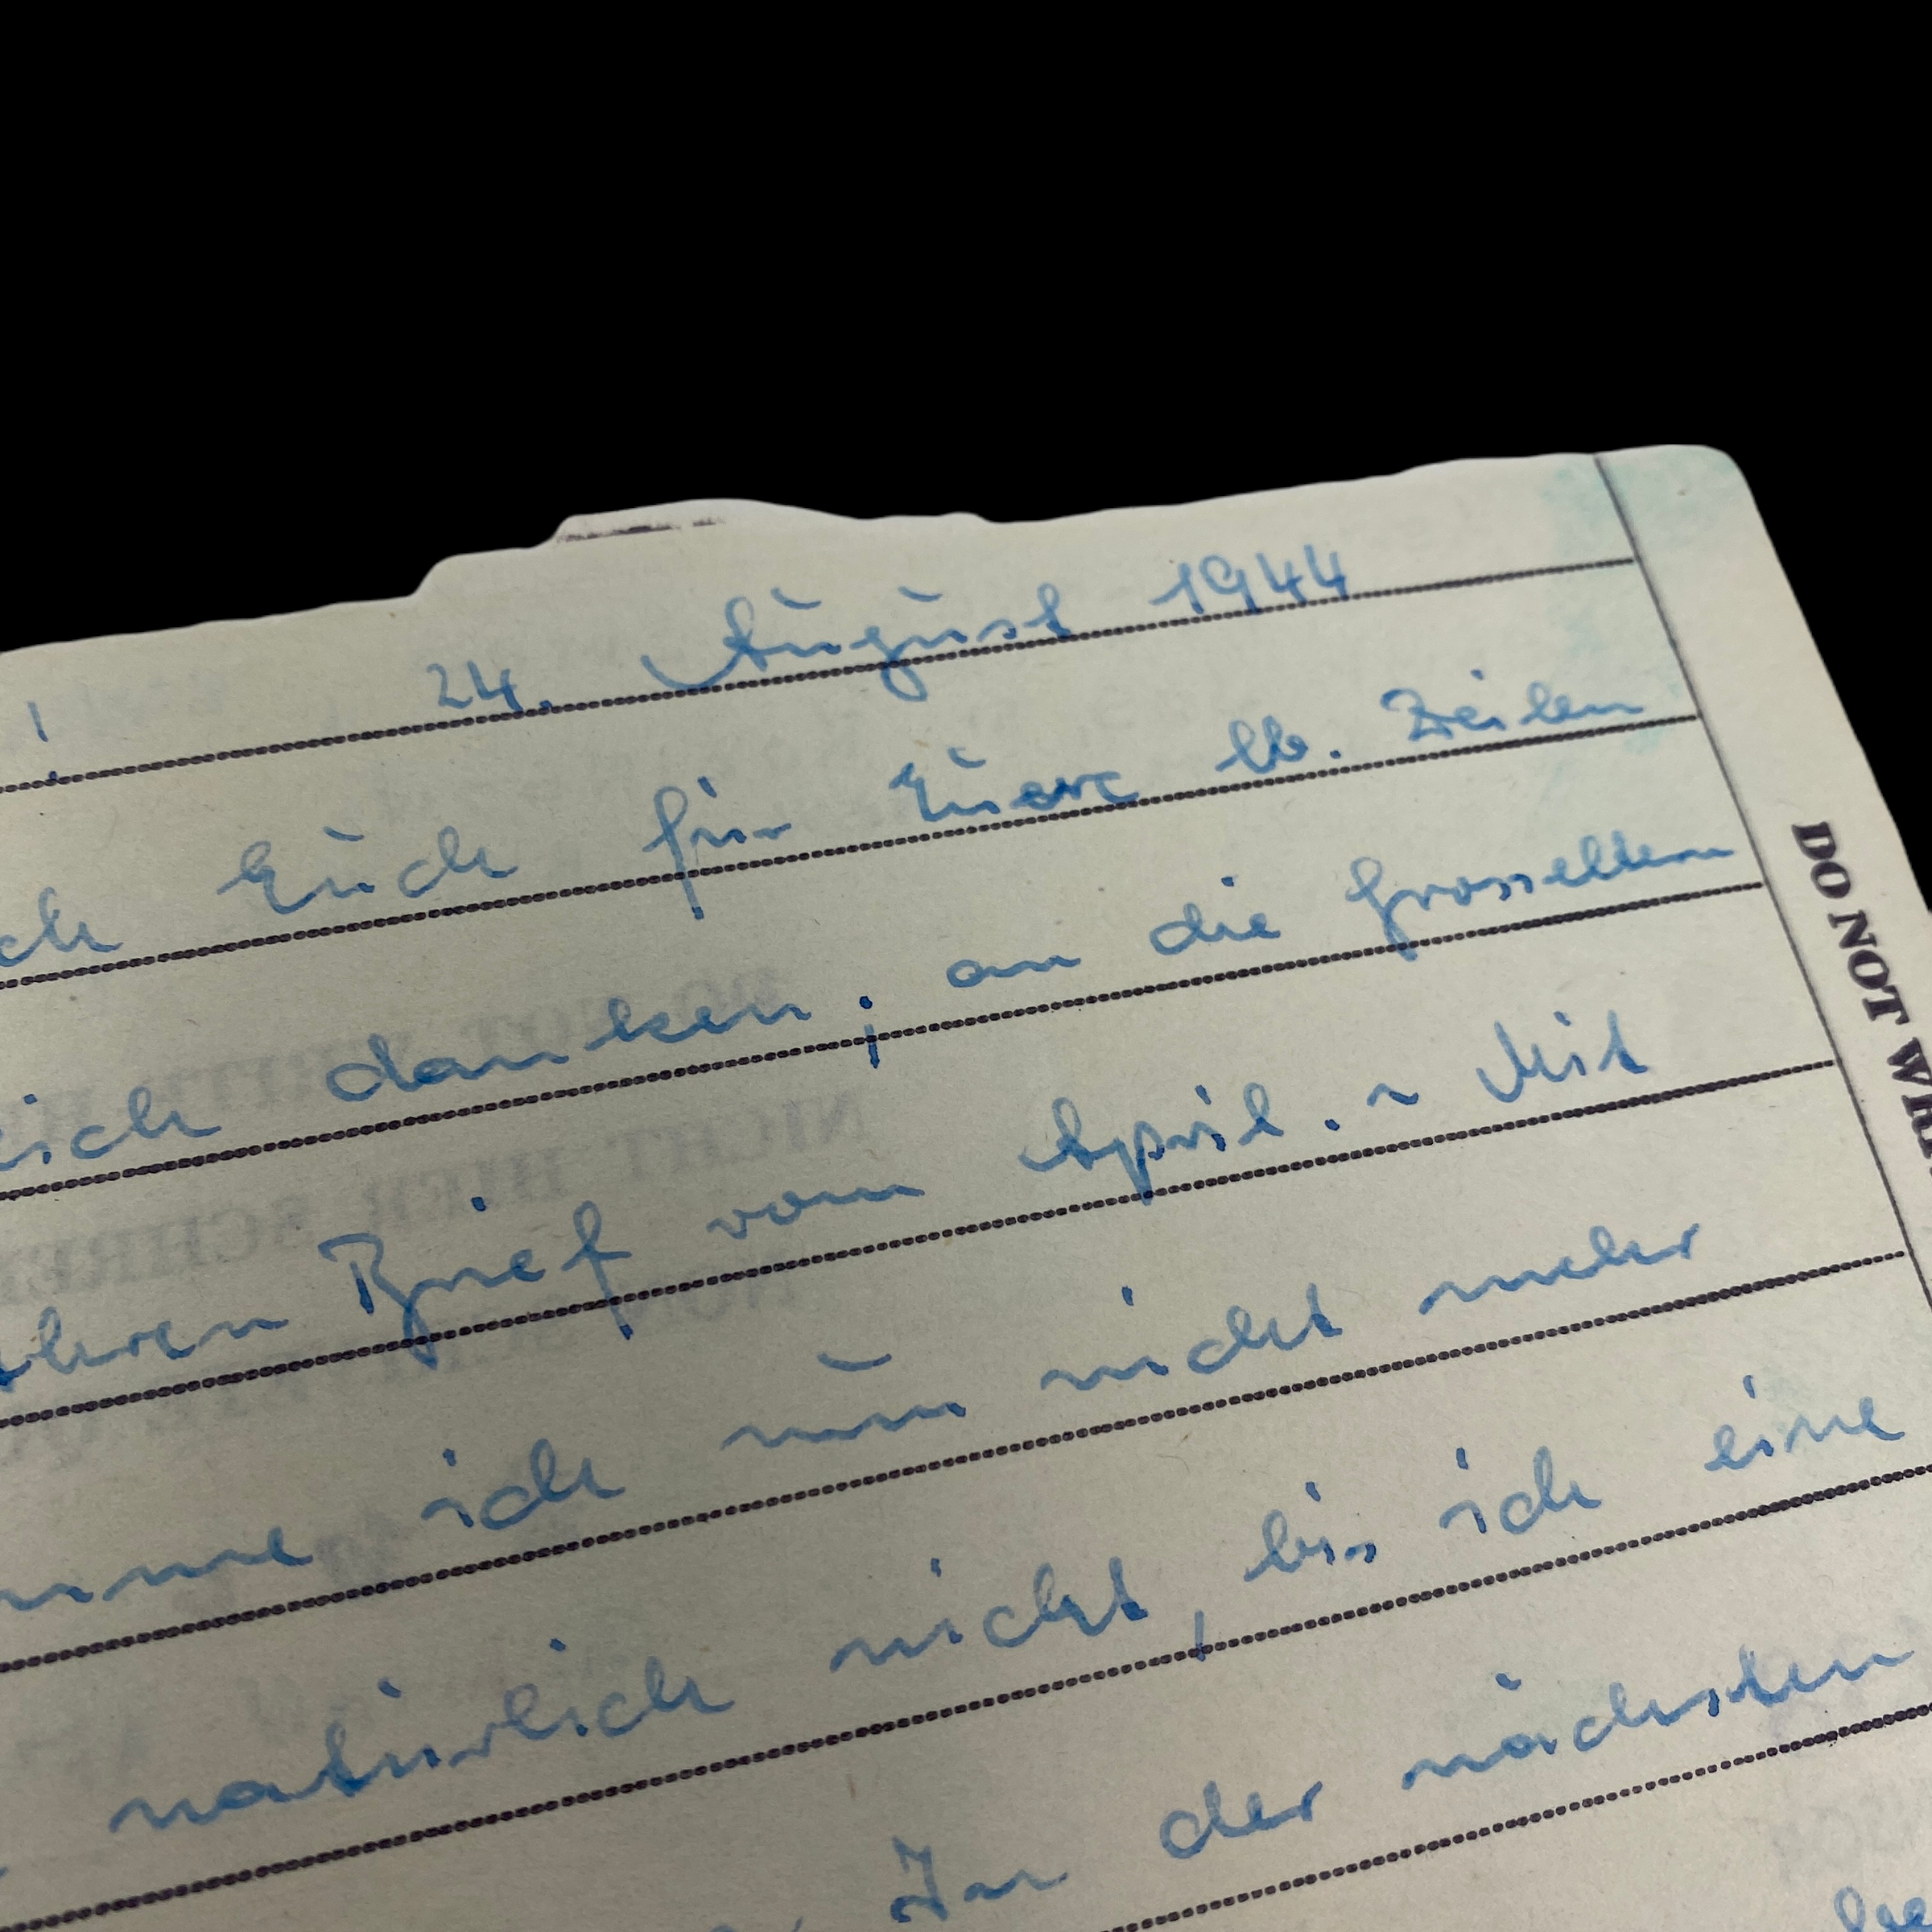 ! 24. August 1944
ch Euch für Euere lb. Zeilen
eich danken; an die Grosseltern
ihren Brief vom April. ~ Mit
nne ich nun nicht mehr
natürlich nicht, bis ich eine
In der nächsten
DO NOT WRI